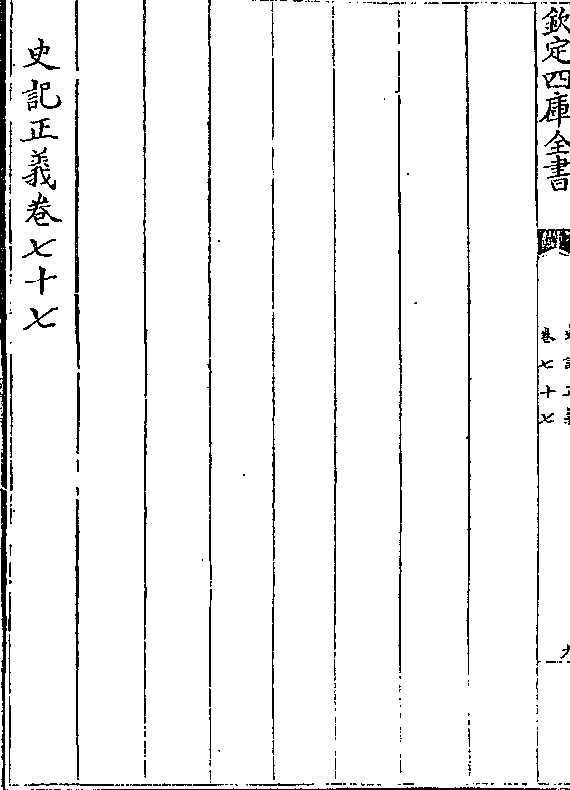 欽定四庫全書
史記正義
卷七十七
史記正義卷七十七